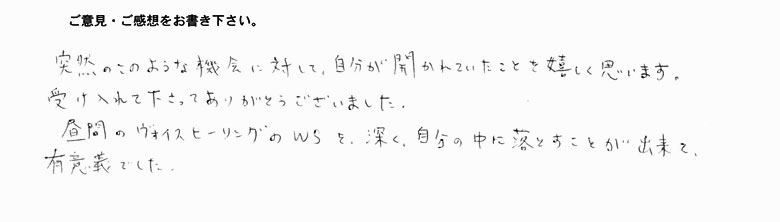 ご意見・ご感想をお書き下さい。
突然のこのような機会に対して、自分が開かれていたことを嬉しく思います。
受け入れて下さってありがとうございました。
昼間のヴォイスヒーリングのWSを、深く、自分の中に落とすことが出来て、
有意義でした。